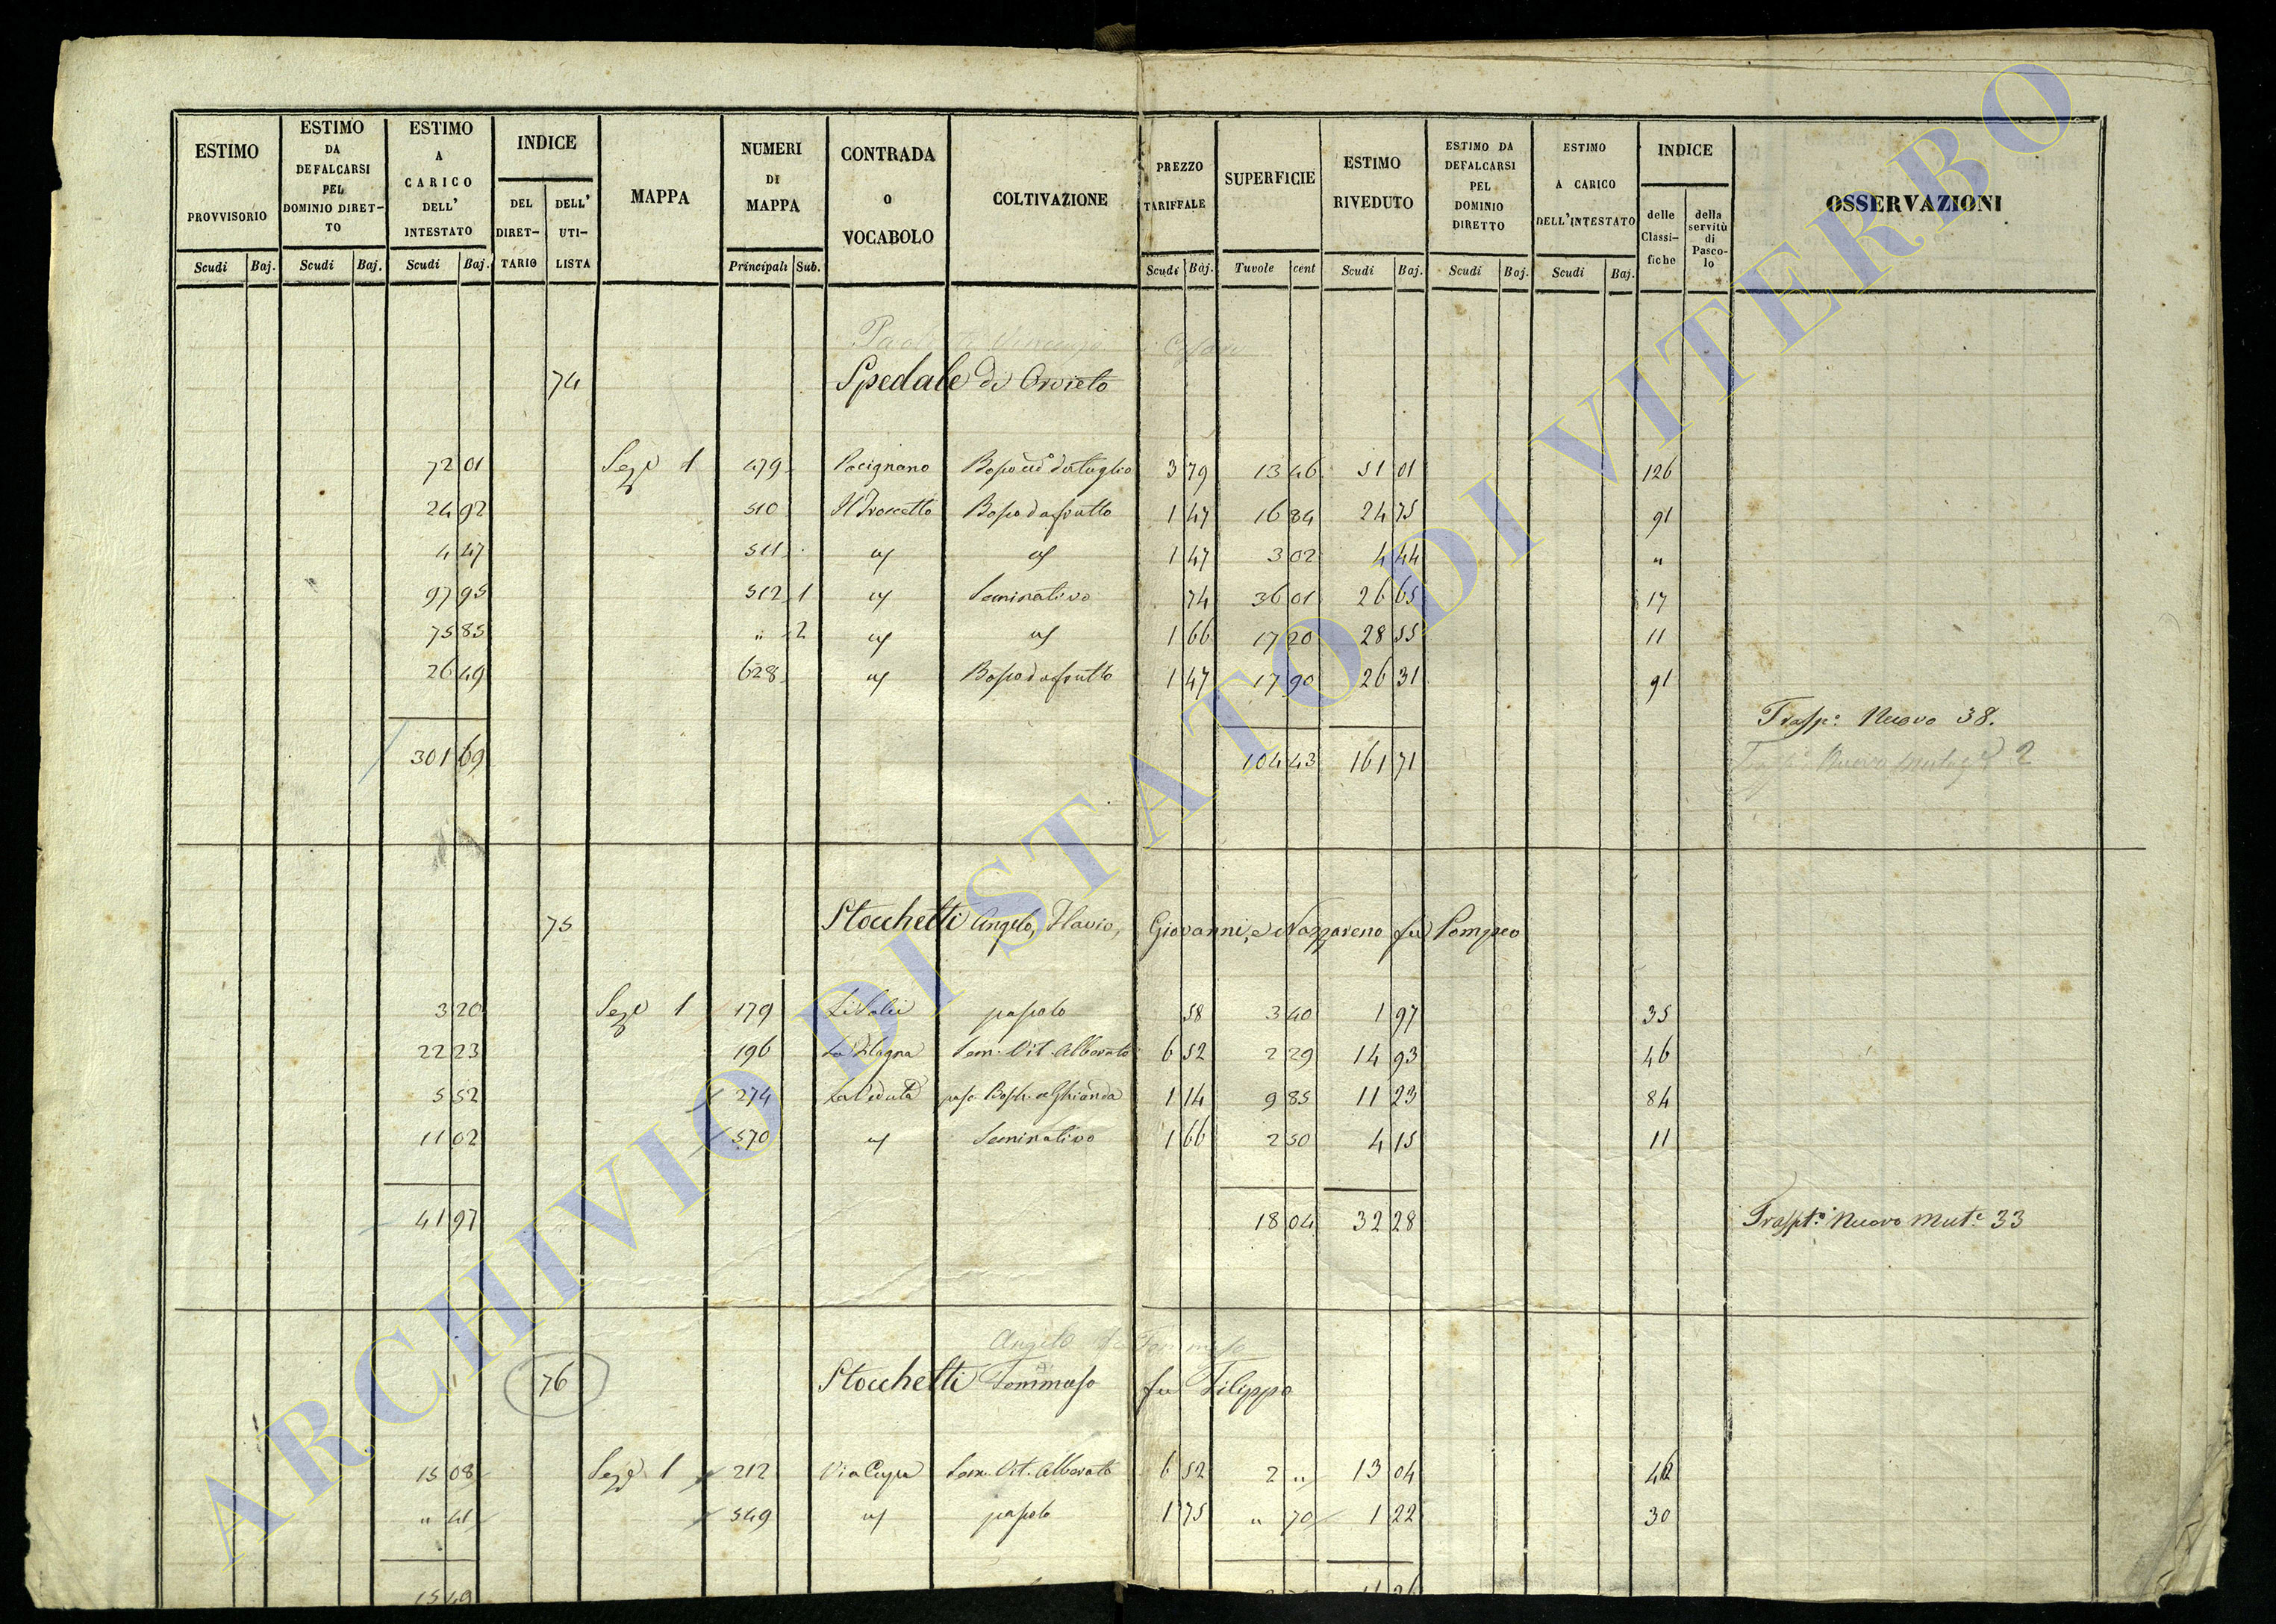 ESTIMO PROVVISORIO Scudi Baj.
ESTIMO DA DEFALCARSI PEL DOMINIO DIRET-TO Scudi Baj.
ESTIMO A CARICO DELL' INTESTATO Scudi Baj.
INDICE DEL DIRET-TARIO DELL' UTI-LISTA
MAPPA
NUMERI DI MAPPA Principali Sub.
CONTRADA o VOCABOLO
COLTIVAZIONE
PREZZO TARIFFALE Scudi Baj.
SUPERFICIE Tavole cent
ESTIMO RIVEDUTO Scudi Baj.
ESTIMO DA DEFALCARSI PEL DOMINIO DIRETTO Scudi Baj.
ESTIMO A CARICO DELL'INTESTATO Scudi Baj.
INDICE delle Classi-fiche della servitù di Pasco-lo
OSSERVAZIONI
74 Spedale di Orvieto
72 01 Seze 1 479 Pacignano 3 79 13 46 51 01 126
24 92 510 Bosco da frutto 1 47 16 84 24 75 91
4 47 511 " " 1 47 3 02 4 44 "
97 95 512 1 " Seminativo 74 36 01 26 65 17
75 85 " 2 " " 1 66 17 20 28 55 11
26 49 628 " Bosco da frutto 1 47 17 90 26 31 91
Trasp.o Nuovo 38.
301 69 104 43 161 71
2
75 Stocchetti Angelo, Flavio, Giovanni, e Nazzareno fu Pompeo
3 20 Seze 1 179 pascolo 58 3 40 1 97 35
22 23 196 Sem. Vit. Alberato 6 52 2 29 14 93 46
5 52 274 La Veduta pasc. Bosch. e Ghianda 1 14 9 85 11 23 84
11 02 570 " Seminativo 1 66 2 50 4 15 11
41 97 18 04 32 28 Traspt.o Nuovo Mut.e 33
Angelo fu Tommaso
76 Stocchetti Tommaso fu Filippo
15 08 Seze 1 212 Via Cupa Sem. Vit. Alberato 6 52 2 " 13 04
" 41 549 " pascolo 1 75 " 70 1 22 30
15 49
ARCHIVIO DI STATO DI VITERBO